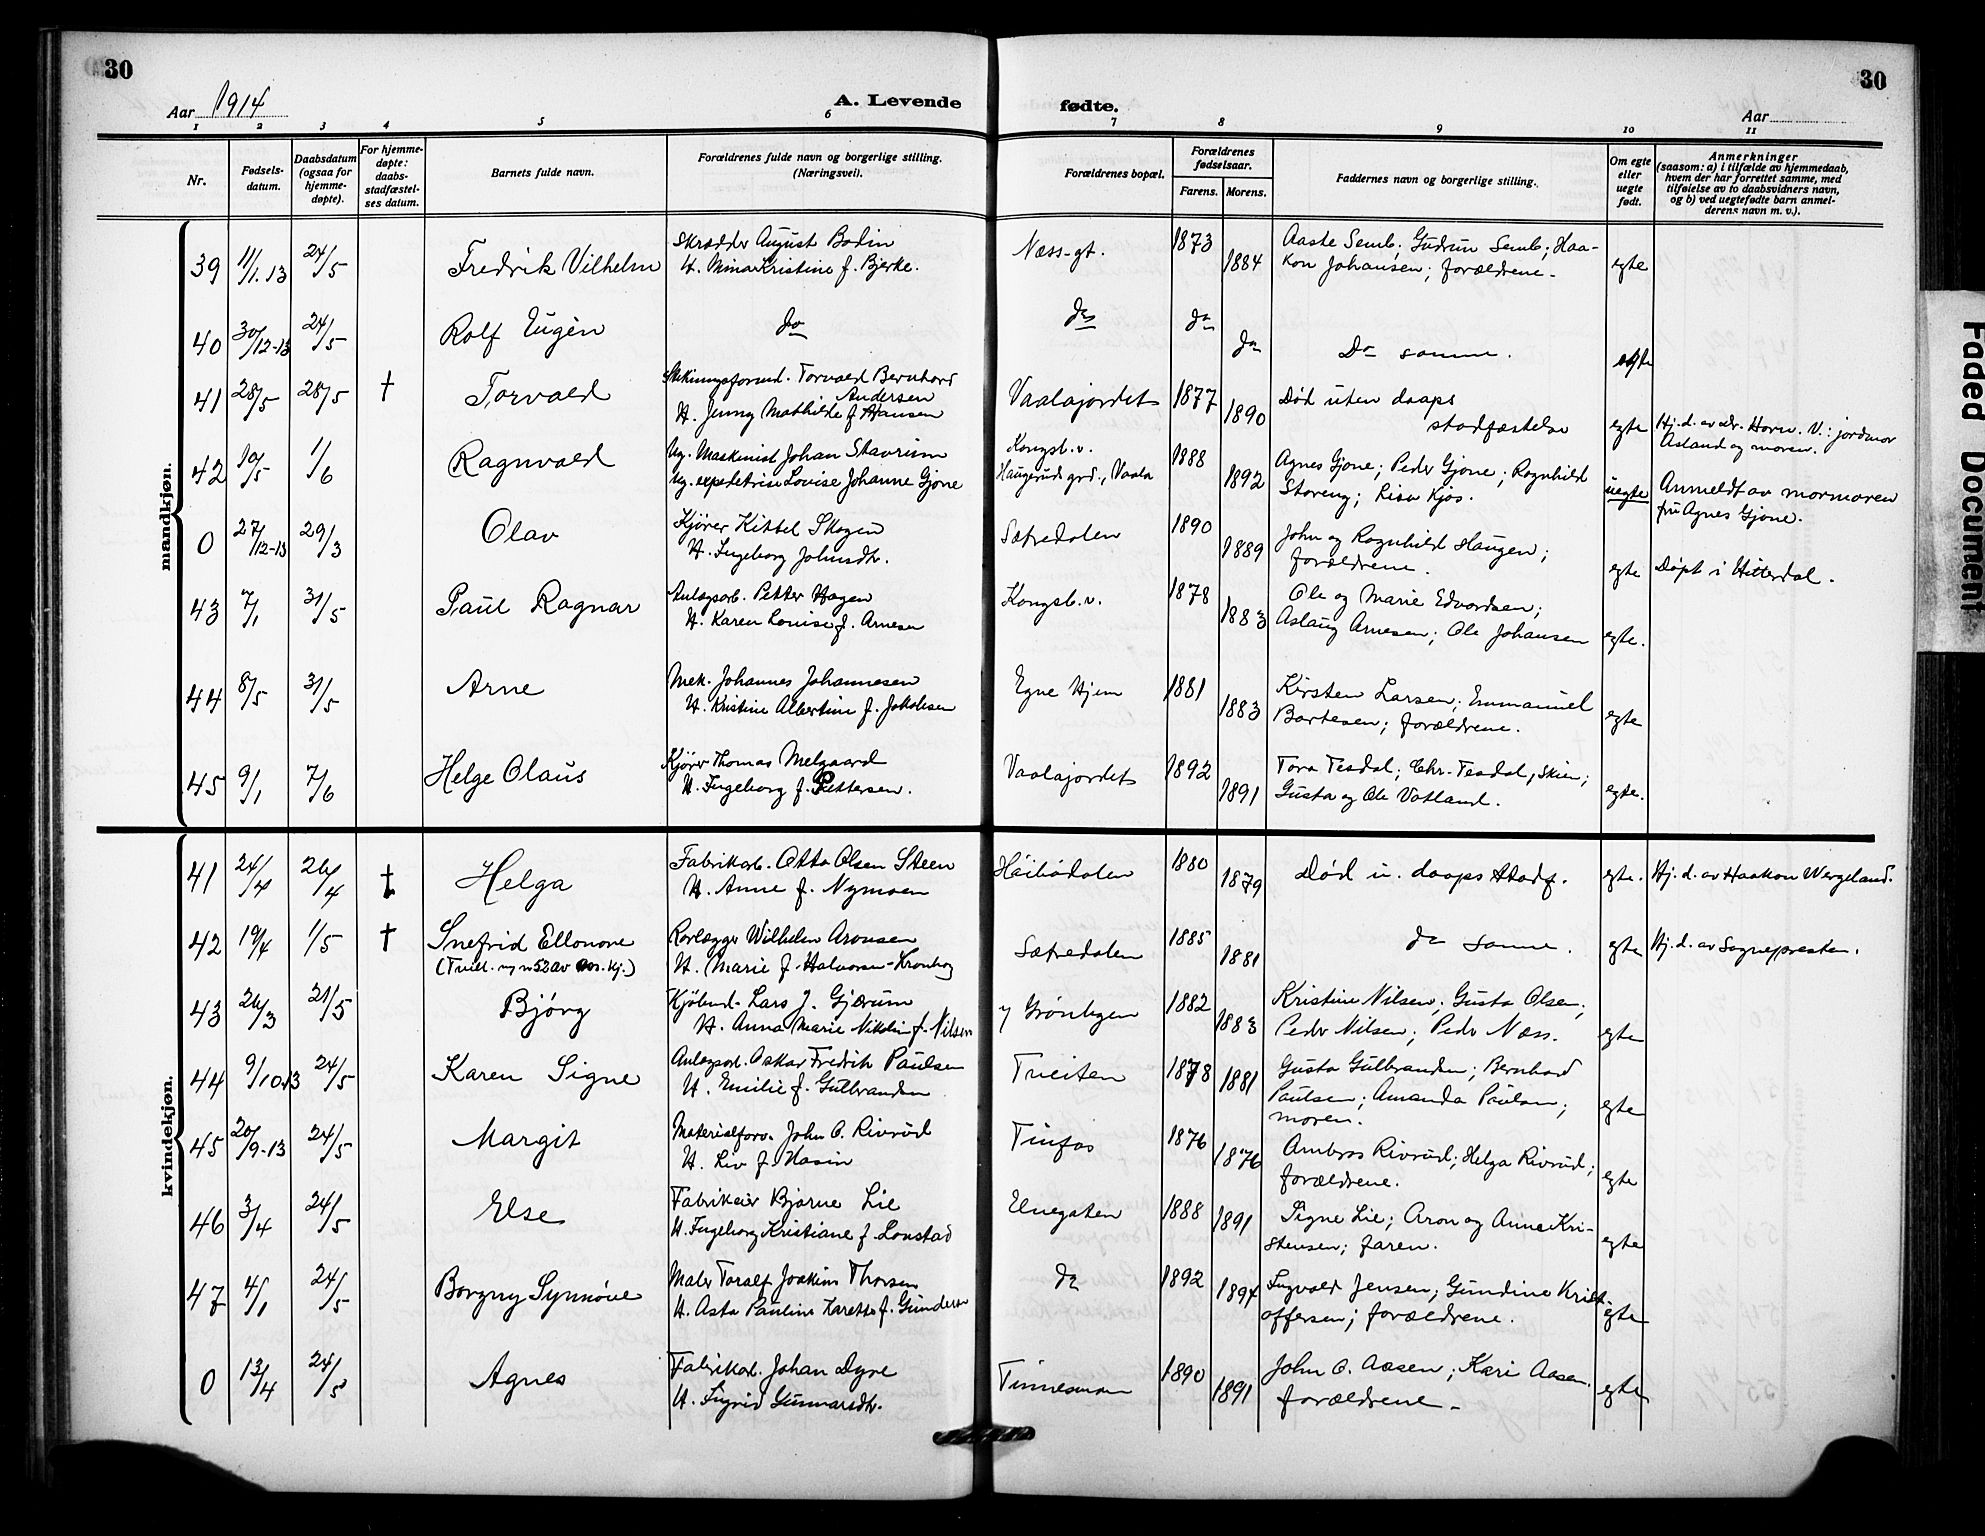 30
30
Aar 1914
A. Levende
fødte.
Aar
1 2 3 4 5 6 7 8 9 10 11
Nr.
Fødsels-
datum.
Daabsdatum
(ogsaa for
hjemme-
døpte).
For hjemme-
døpte:
daabs-
stadfæstel-
ses datum.
Barnets fulde navn.
Forældrenes fulde navn og borgerlige stilling.
(Næringsvei).
Forældrenes bopæl.
Forældrenes
fødselsaar.
Farens. Morens.
Faddernes navn og borgerlige stilling.
Om egte
eller
uegte
født.
Anmerkninger
(saasom: a) i tilfælde av hjemmedaab,
hvem der har forrettet samme, med
tilføielse av to daabsvidners navn,
og b) ved uegtefødte barn anmel-
derens navn m. v.).
mandkjøn.
39 11/1.13 24/5 Fredrik Vilhelm
Skrædder August Bodin
H. Mina Kristine f. Bjerke.
Næss-gt. 1873 1884
Aaste Semb; Gudrun Semb; Haa-
kon Johansen; forældrene -
egte
40 30/12-13 24/5 Rolf Eugèn
do do do do Do samme. egte
41 28/5 28/5 † Torvald
Torvald Bernhard
Andersen
H. Jenny Mathilde f. Hansen
Vaalajordet 1877 1890
Død uten daaps
stadfæstelse
egte
Hj. d. av dr. Horn. V.: jordmor
Asland og moren.
42 10/5 1/6 Ragnvald
Ug. Maskinist Johan Stavrum
Ug. expeditrise Lovise Johanne Gjone
Kongsb. v.
Haugerud grd., Vaala
1888 1892
Agnes Gjone; Peder Gjone; Ragnhild
Storeng; Kjos.
uegte
Anmeldt av mormoren
fru Agnes Gjone.
0 27/12-13 29/3 Olav
Kjører Kittel Skogen
H. Ingeborg Johnsdtr.
Sætredalen 1890 1889
John og Ragnhild Haugen;
forældrene.
egte
Døpt i Hitterdal.
43 7/1 31/5 Paul Ragnar
Anlægsarb. Petter Hagen
H. Karen Louise f. Arnesen
Kongsb. v. 1878 1883
Ole og Marie Edvardsen;
Aslaug Arnesen; Ole Johansen
egte.
44 8/5 31/5 Arne
Mek. Johannes Johannesen
H. Kristine Albertine f. Jakobsen
Egne Hjem 1881 1883
Kirsten Larsen; Emmanuel
Bortesen; forældrene.
egte
45 9/1 7/6 Helge Olaus
Kjører Thomas Melgaard
H. Ingeborg f. Pettersen.
Vaalajordet 1892 1891
Tora Tesdal; Chr. Tesdal, Skien;
Gusta og Ole Vatland.
egte.
kvindekjøn.
41 24/4 26/4 † Helga
Fabrikarb. Otto Olsen Steen
H. Anne f. Nymoen
Høibødalen 1880 1879
Død u. daaps stadf.
egte.
Hj. d. av Haakon Wergeland.
42 19/4 1/5 † Snefrid Ellonore
52 av m. kj.)
Rørlægger Wilhelm Aronsen
H. Marie f. Halvorsen-Kronborg
Sætredalen 1885 1881
do samme.
egte
Hj. d. av Sognepresten.
43 26/3 21/5 Bjørg
Kjøbmd. Lars J. Gjærum
H. Anna Marie Nikolin f. Nilsen
Grønbygen 1882 1883
Kristine Nilsen; Gusta Olsen;
Peder Nilsen; Peder Næss.
egte
44 9/10.13 24/5 Karen Signe
Anlægsarb. Oskar Fredrik Paulsen
H. Emilie f. Gulbrandsen
Tveiten 1878 1881
Gusta Gulbrandsen; Bernhard
Paulsen; Amanda Paulsen;
moren.
egte
45 20/9-13 24/5 Margit
Materialforv. John O. Rivrud
H. Liv f. Hasin
Tinfos 1876 1876
Ambros Rivrud; Helga Rivrud;
forældrene.
egte
46 3/4 24/5 Else
Fabrikeier Bjarne Lie
H. Ingeborg Kristiane f. Lonstad
Enegaten 1888 1891
Signe Lie; Aron og Anna Kri-
stensen; faren.
egte
47 4/1 24/5 Borgny Synnöve
Maler Toralf Joakim Thorsen
H. Asta Pauline Karette f. Gundersen
do 1892 1894
Ingvald Jensen; Gundine Krist-
offersen; forældrene.
egte
0 13/4 24/5 Agnes
Fabrikarb. Johan Dyre
H. Sigrid Gunnarsdtr.
Tinnesmoen 1890 1891
John O. Aasen; Kari Aasen.
forældrene -
egte
Faded Document